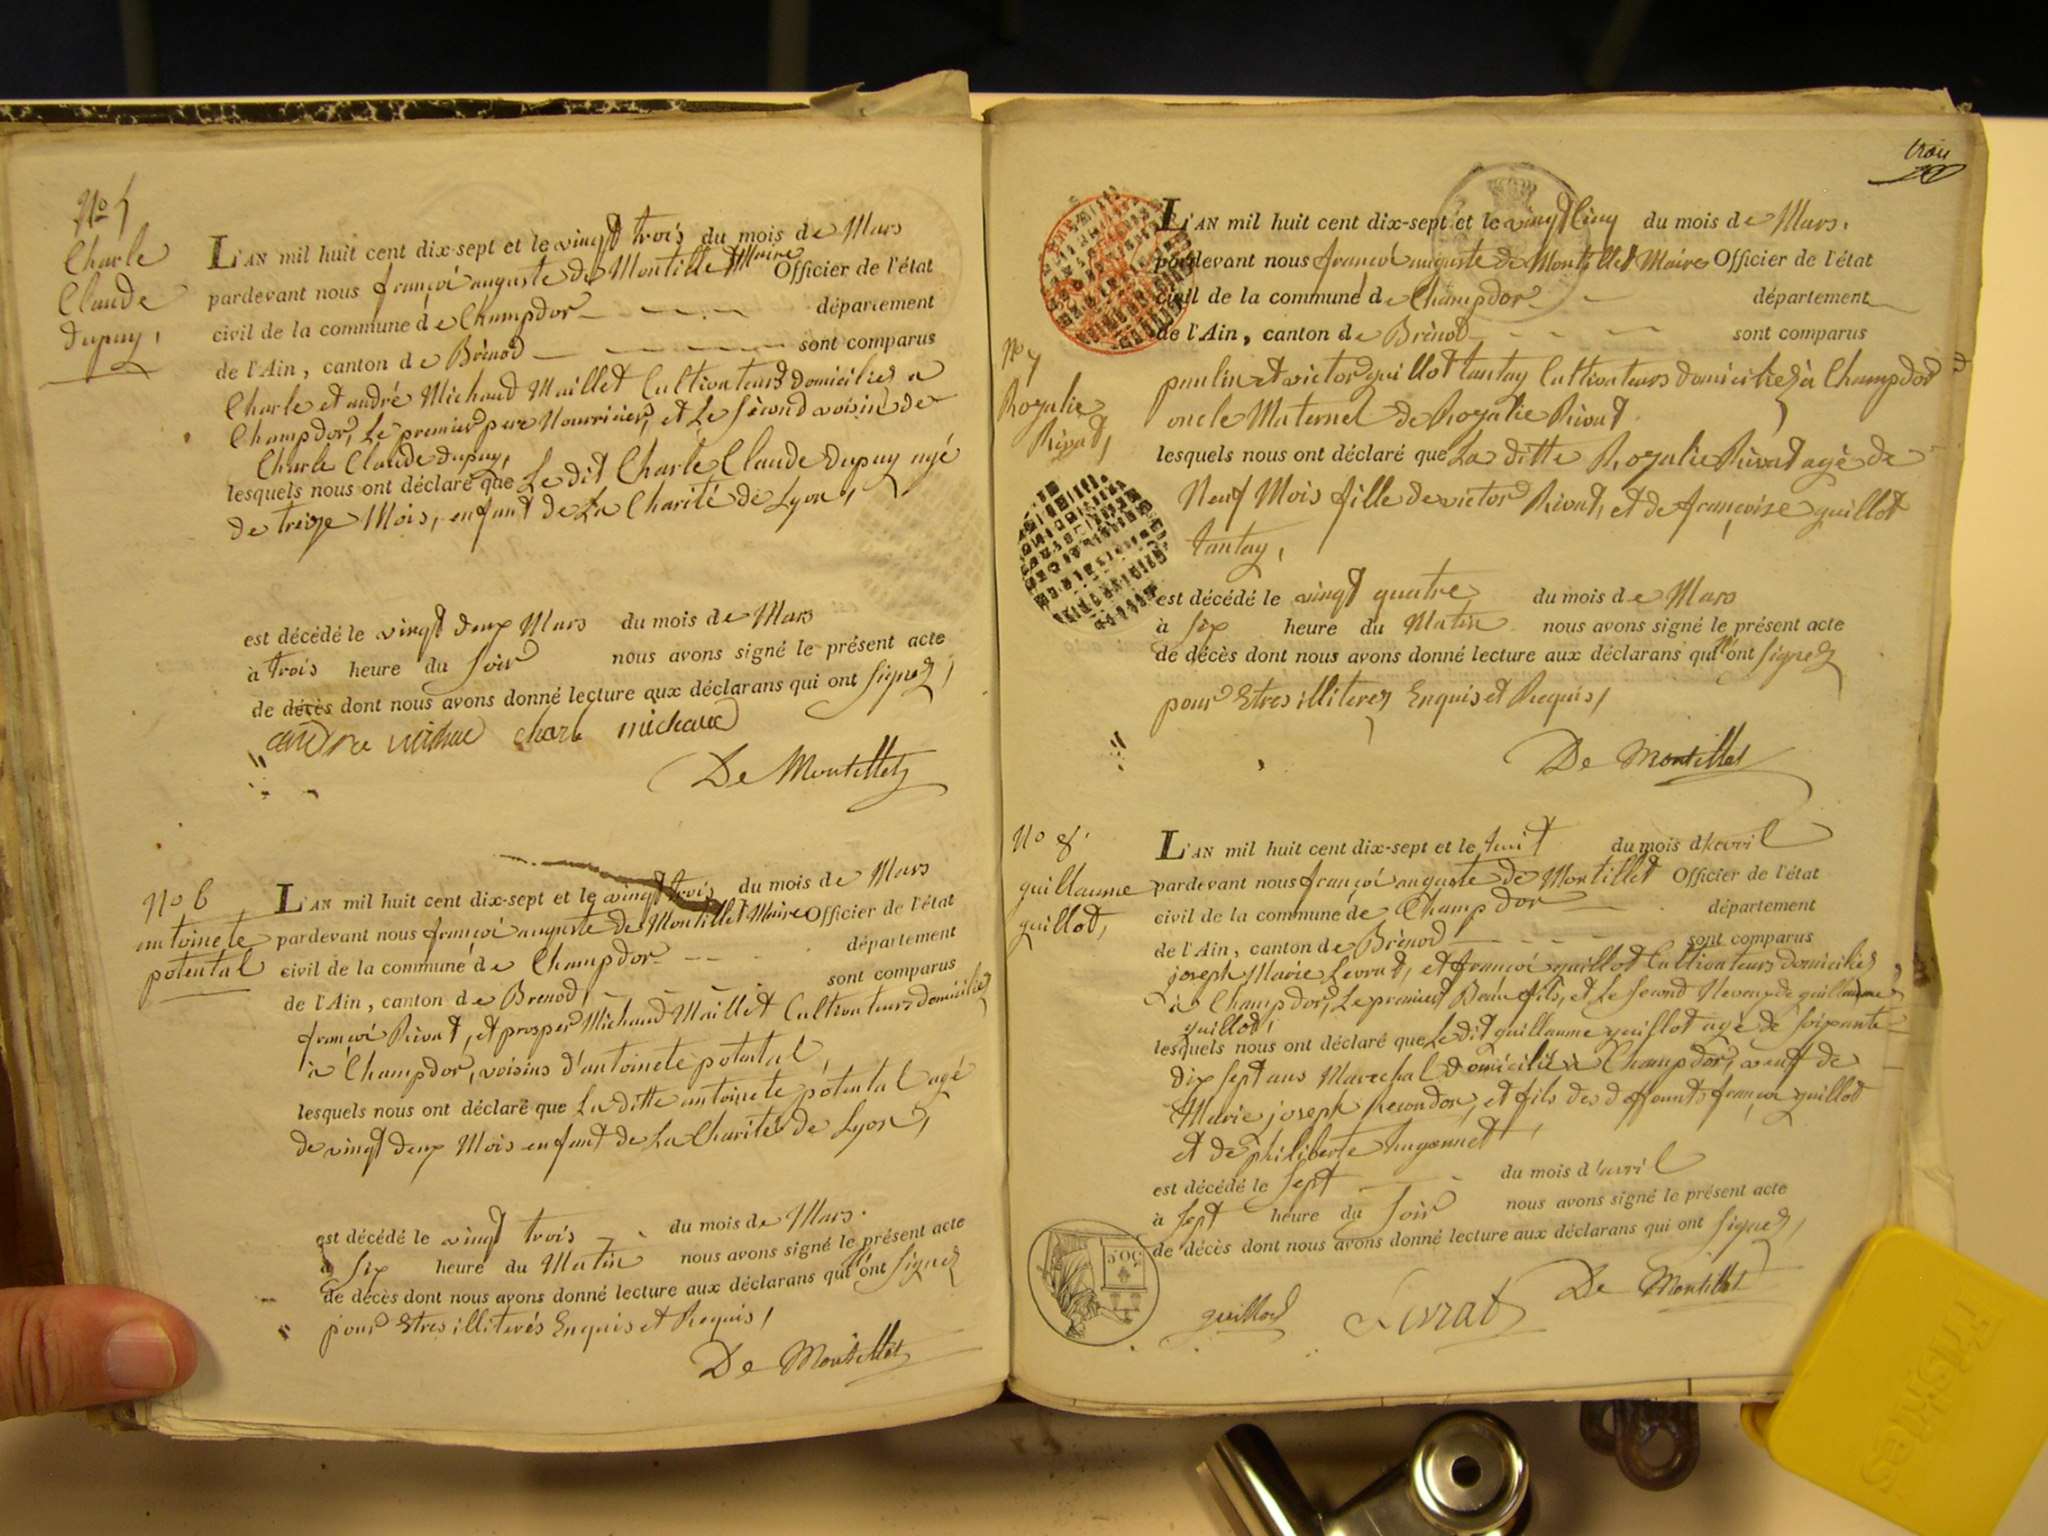 No 5
Charle
Claude
dupuy,
L'AN mil huit cent dix-sept et le vingt trois du mois de Mars
pardevant nous françoi auguste de Montillet Maire Officier de l'état
civil de la commune de Champdor département
de l'Ain, canton de Brénod sont comparus
Charle et andré Michaud Maillet Cultivateurs domiciliés a
Champdor, Le premier pere Nourricier, et Le second voisin de
Charle Claude dupuy,
lesquels nous ont déclaré que Le dit Charle Claude dupuy agé
de treize Mois, enfant de La Charité de Lyon,
est décédé le vingt deux Mars du mois de Mars
à trois heure du soir nous avons signé le présent acte
de décès dont nous avons donné lecture aux déclarans qui ont signez,
andre michae charle michaux
De Montillet
No 6
antoinete
potental
L'AN mil huit cent dix-sept et le vingt trois du mois de Mars
pardevant nous françoi auguste de Montillet Maire Officier de l'état
civil de la commune de Champdor département
de l'Ain, canton de Brenod, sont comparus
françoi Rivat, et prosper Michaud Maillet Cultivateurs domiciliés
à Champdor, voisins d'antoinete potental,
lesquels nous ont déclaré que La ditte antoinete potental agé
de vingt deux Mois enfant de La Charité de Lyon,
est décédé le vingt trois du mois de Mars.
à six heure du Matin nous avons signé le présent acte
de décès dont nous avons donné lecture aux déclarans qui n'ont signez
pour Etres illiterés Enquis et Requis,
De Montillet
trois
L'AN mil huit cent dix-sept et le vingt cinq du mois de Mars.
pardevant nous françoi auguste de Montillet Maire Officier de l'état
civil de la commune de Champdor département
de l'Ain, canton de Brénod sont comparus
No 7
Rozalie
Rivat,
paulin et victor guillot tantay Cultivateurs domiciliez à Champdor
oncle Maternel de Rozalie Rivat
lesquels nous ont déclaré que La ditte Rozalie Rivat agé de
Neuf Mois fille de victor Rivat, et de françoise guillot
tantay,
est décédé le vingt quatre du mois de Mars
à six heure du Matin nous avons signé le présent acte
de décès dont nous avons donné lecture aux déclarans qui n'ont signez
pour Etres illiterez Enquis et Requis,
De Montillet
No 8.
guillaume
guillot,
L'AN mil huit cent dix-sept et le huit du mois d'avril
pardevant nous françoi auguste de Montillet Officier de l'état
civil de la commune de Champdor département
de l'Ain, canton de Brénod sont comparus
joseph Marie Levrat, et françoi guillot Cultivateurs domiciliés
à Champdor, Le premier Beau fils, et Le second Neveux de guillaume
guillot,
lesquels nous ont déclaré que Le dit guillaume guillot agé de soixante
dix sept ans Marechal domicilié à Champdor, veuf de
Marie joseph, et fils des deffunts françoi guillot
et de philiberte
est décédé le sept du mois d'avril
à sept heure du soir nous avons signé le présent acte
de décès dont nous avons donné lecture aux déclarans qui ont signez,
50 C
guillot Levrat De Montillet